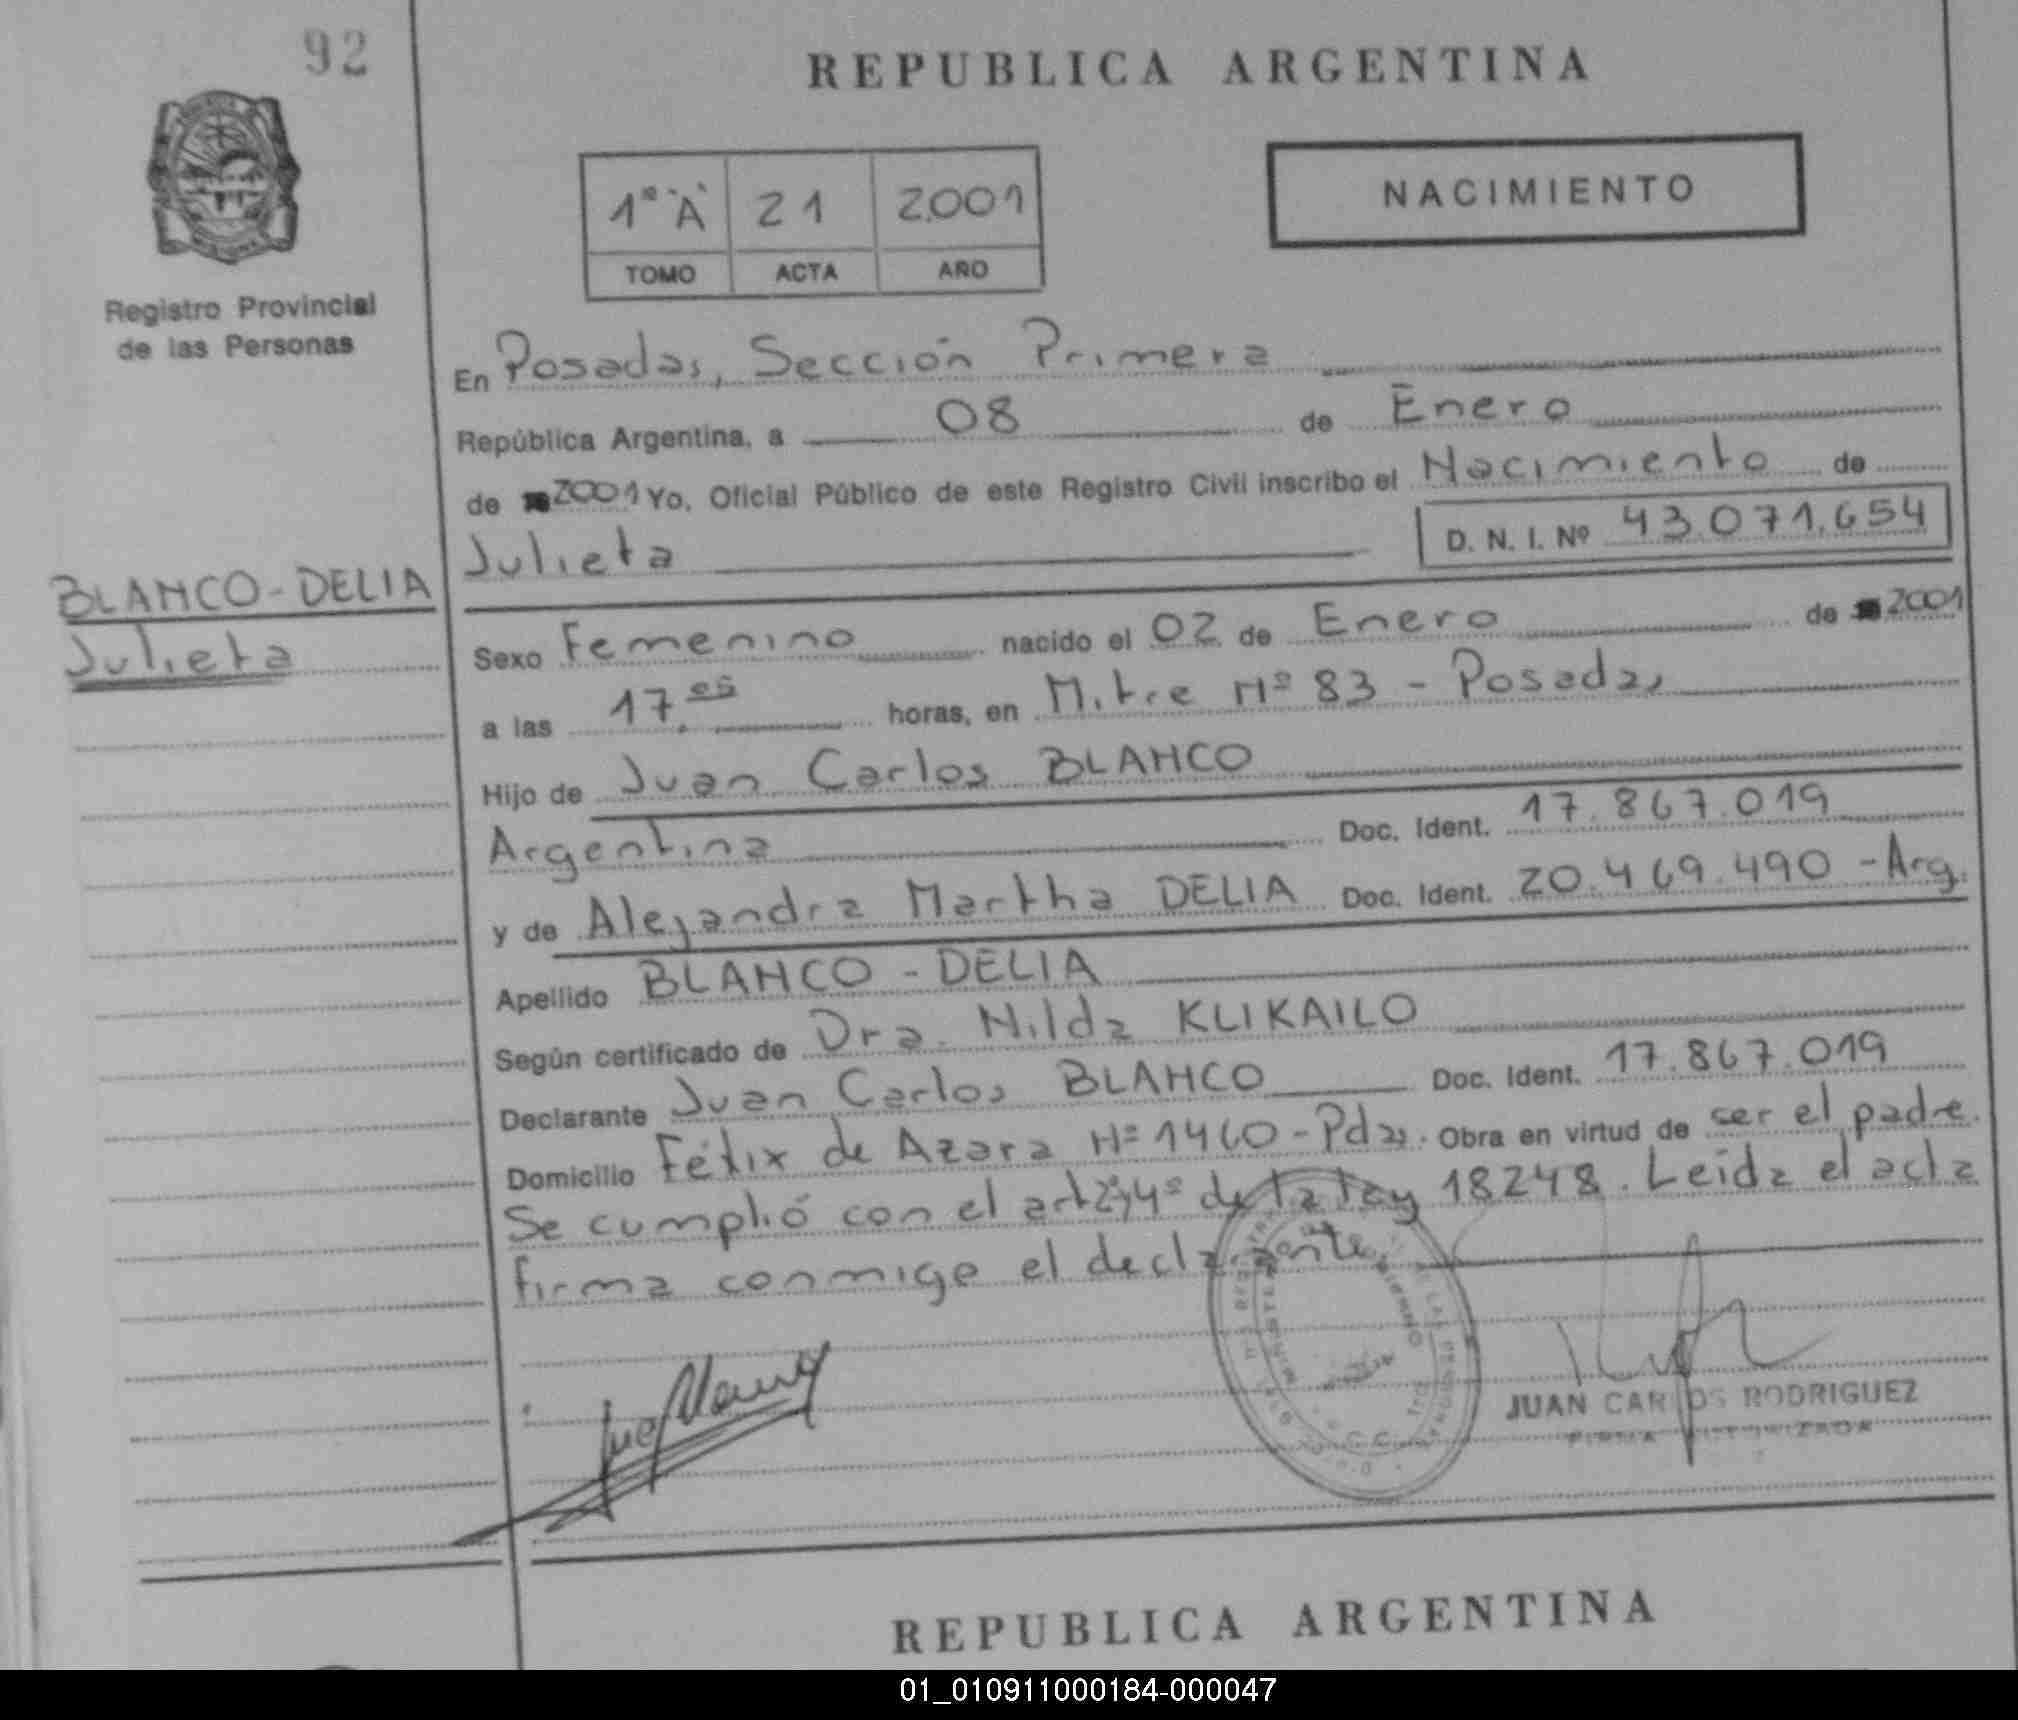 92
REPUBLICA ARGENTINA
1º "A" 21 2.001
TOMO ACTA AÑO
NACIMIENTO
Registro Provincial
de las Personas
En Posadas, Sección Primera
República Argentina, a 08 de Enero
de 2001 Yo, Oficial Público de este Registro Civil inscribo el Nacimiento de
Julieta D. N. I. Nº 43.071.654
BLANCO-DELIA
Julieta
Sexo Femenino nacido el 02 de Enero de 2001
a las 17.05 horas, en Mitre Nº 83 - Posadas
Hijo de Juan Carlos BLANCO
Argentina Doc. Ident. 17.867.019
y de Alejandra Martha DELIA Doc. Ident. 20.469.490 - Arg.
Apellido BLANCO - DELIA
Según certificado de Dra. Nilda KLIKAILO
Declarante Juan Carlos BLANCO Doc. Ident. 17.867.019
Domicilio Félix de Azara Nº 1460 - Pdas. Obra en virtud de ser el padre.
Se cumplió con el art 2º y 4º de la ley 18248. Leída el acta
firma conmigo el declarante.
JUAN CARLOS RODRIGUEZ
FIRMA AUTORIZADA
REPUBLICA ARGENTINA
01_010911000184-000047